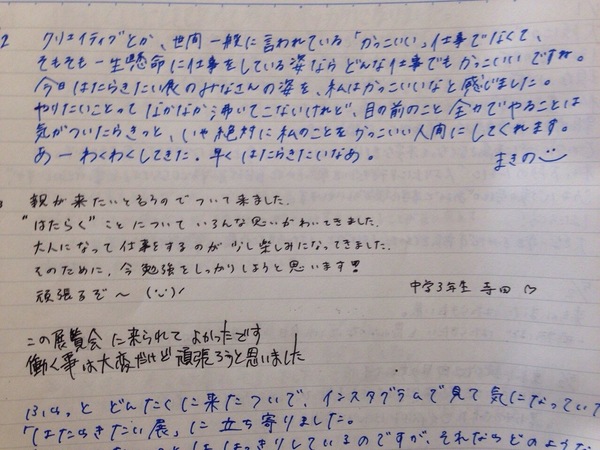 クリエイティブとか、世間一般に言われている「かっこいい」仕事でなくて、
そもそも一生懸命に仕事をしている姿ならどんな仕事でもかっこいいですね。
今日はたらきたい展のみなさんの姿を、私はかっこいいなと感じました。
やりたいことってなかなか沸いてこないけれど、目の前のこと全力でやることは
気がついたらきっと、いや絶対に私のことをかっこいい人間にしてくれます。
あーわくわくしてきた。早くはたらきたいなあ。
まきの
親が来たいと言うのでついて来ました。
"はたらく"ことについていろんな思いがわいてきました。
大人になって仕事をするのが少し楽しみになってきました。
そのために、今勉強をしっかりしようと思います!!
頑張るぞ〜
中学3年生 寺田 ♡
この展覧会に来られてよかったです
働く事は大変だけど頑張ろうと思いました
どんたくに来たついで、インスタグラムで見て気になっていた
「はたらきたい展」に立ち寄りました。
はっきりしているのですが、それならどのような